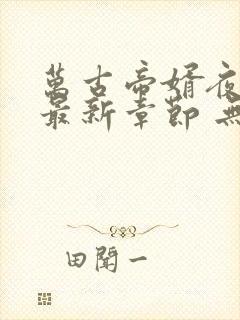 萬古帝婿夜
最新章節 無
田聞一